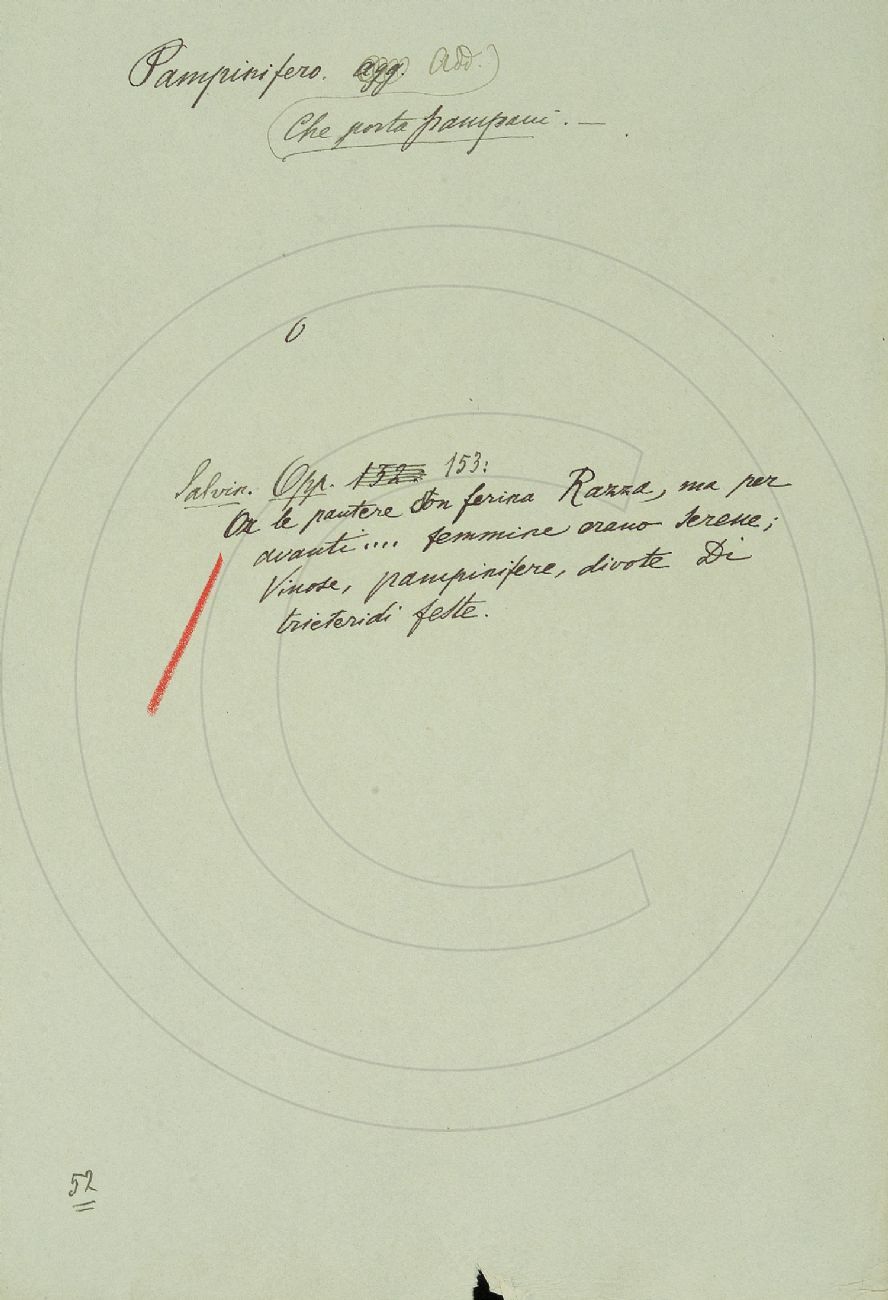 Pampinifero. agg. Add.)
Che porta pampani. —
O
Salvin. Opp. 152. 153:
Or le pantere son ferina Razza, ma per
avanti.... femmine erano serene;
Vinose, pampinifere, divote Di
trieteridi feste.
52